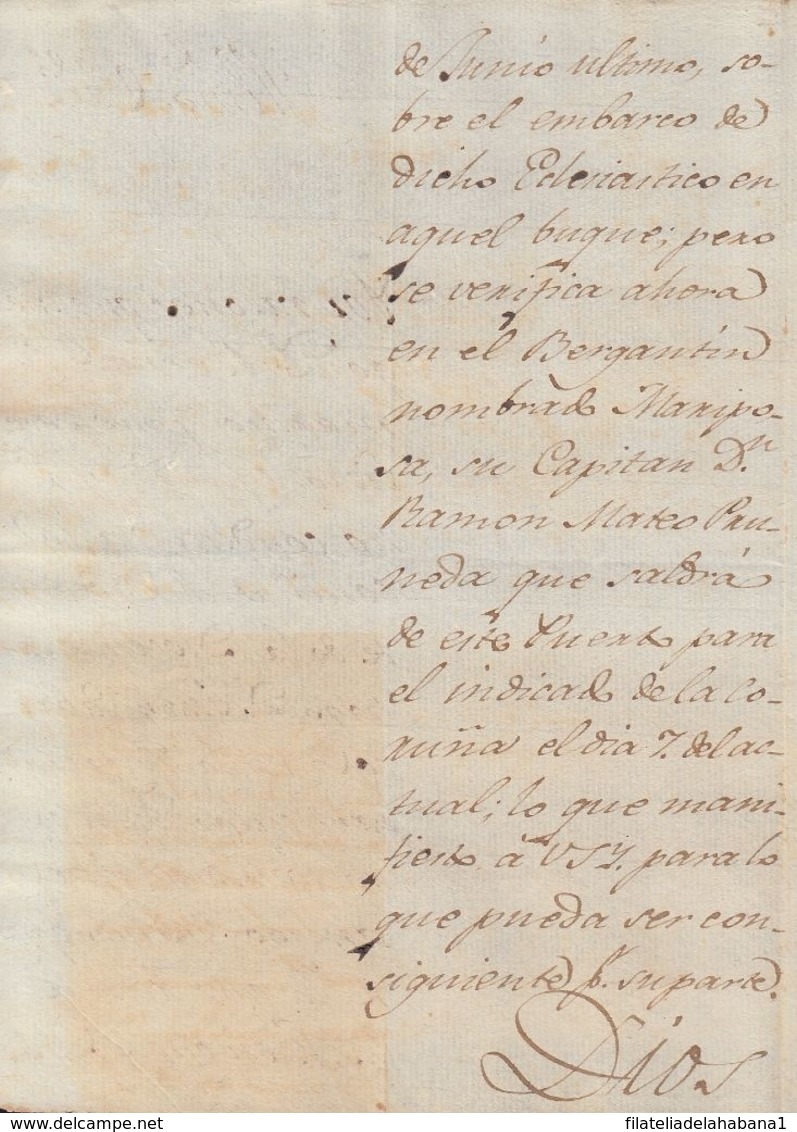 de Junio ultimo, so-
bre el embarco de
dicho Eclesiastico en
aquel buque; pero
se verifica ahora
en el Bergantin
nombrado Maripo-
sa, su Capitan Dn.
Ramon Mateo Pru-
neda que saldrá
de este Puerto para
el indicado de la Co-
ruña el dia 7. del ac-
tual; lo que mani-
fiesto à VSY. para lo
que pueda ser con-
siguiente pr. su parte.
Dios
filateliadelahabana1